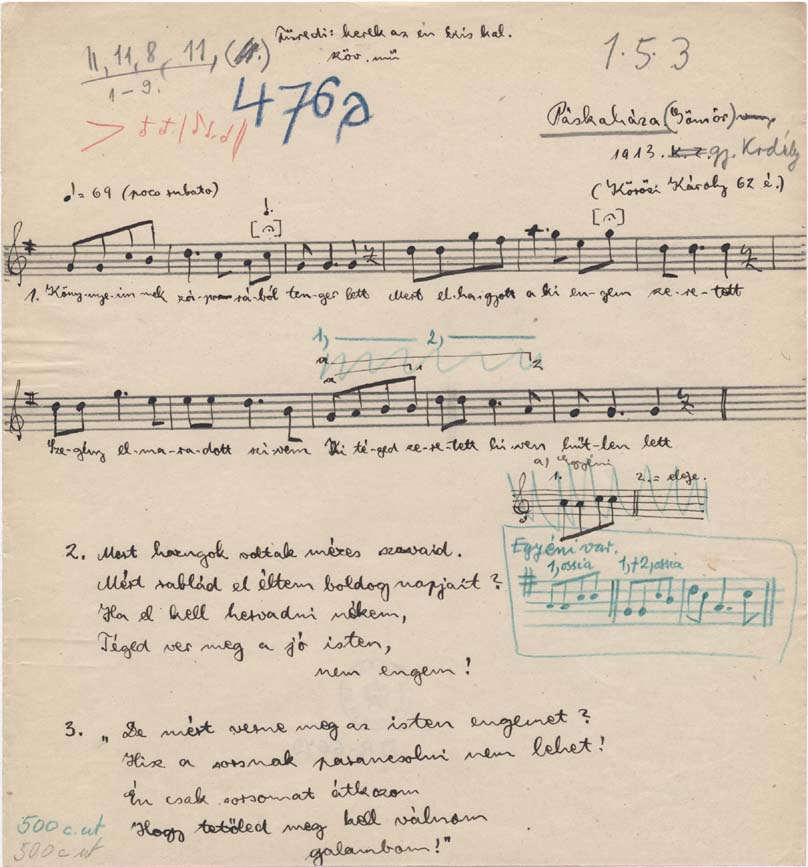 II, 11, 8, 11, (4.)
1-9.
Füredi: kerek az én szűr kal.
köv. mű
1.5.3
476 a
Páskaháza (Gömör)
1913. gy. Krdély
♩ = 69 (poco rubato)
(Kőrösi Károly 62 é.)
1. Köny-nye-im-nek zá-po-rá-ból ten-ger lett Mert el-ha-gyott a ki en-gem sze-re-tett
1, 2,
Sze-gény el-ma-ra-dott szi-vem Ki té-ged sze-re-tett hi-ven hüt-len lett
a) Egyéni
1. 2. = eleje.
Egyéni var.
1, ossia 1,+2, ossia
2. Mert hazugok voltak mézes szavaid.
Mért rablád el éltem boldog napjait?
Ha el kell hervadni nékem,
Téged ver meg a jó isten,
nem engem!
3. „De mért verne meg az isten engemet?
Hisz a sorsnak parancsolni nem lehet!
Én csak sorsomat átkozom
Hogy tetőled meg kell válnom
galambom!"
500 c. ut
500 c. ut